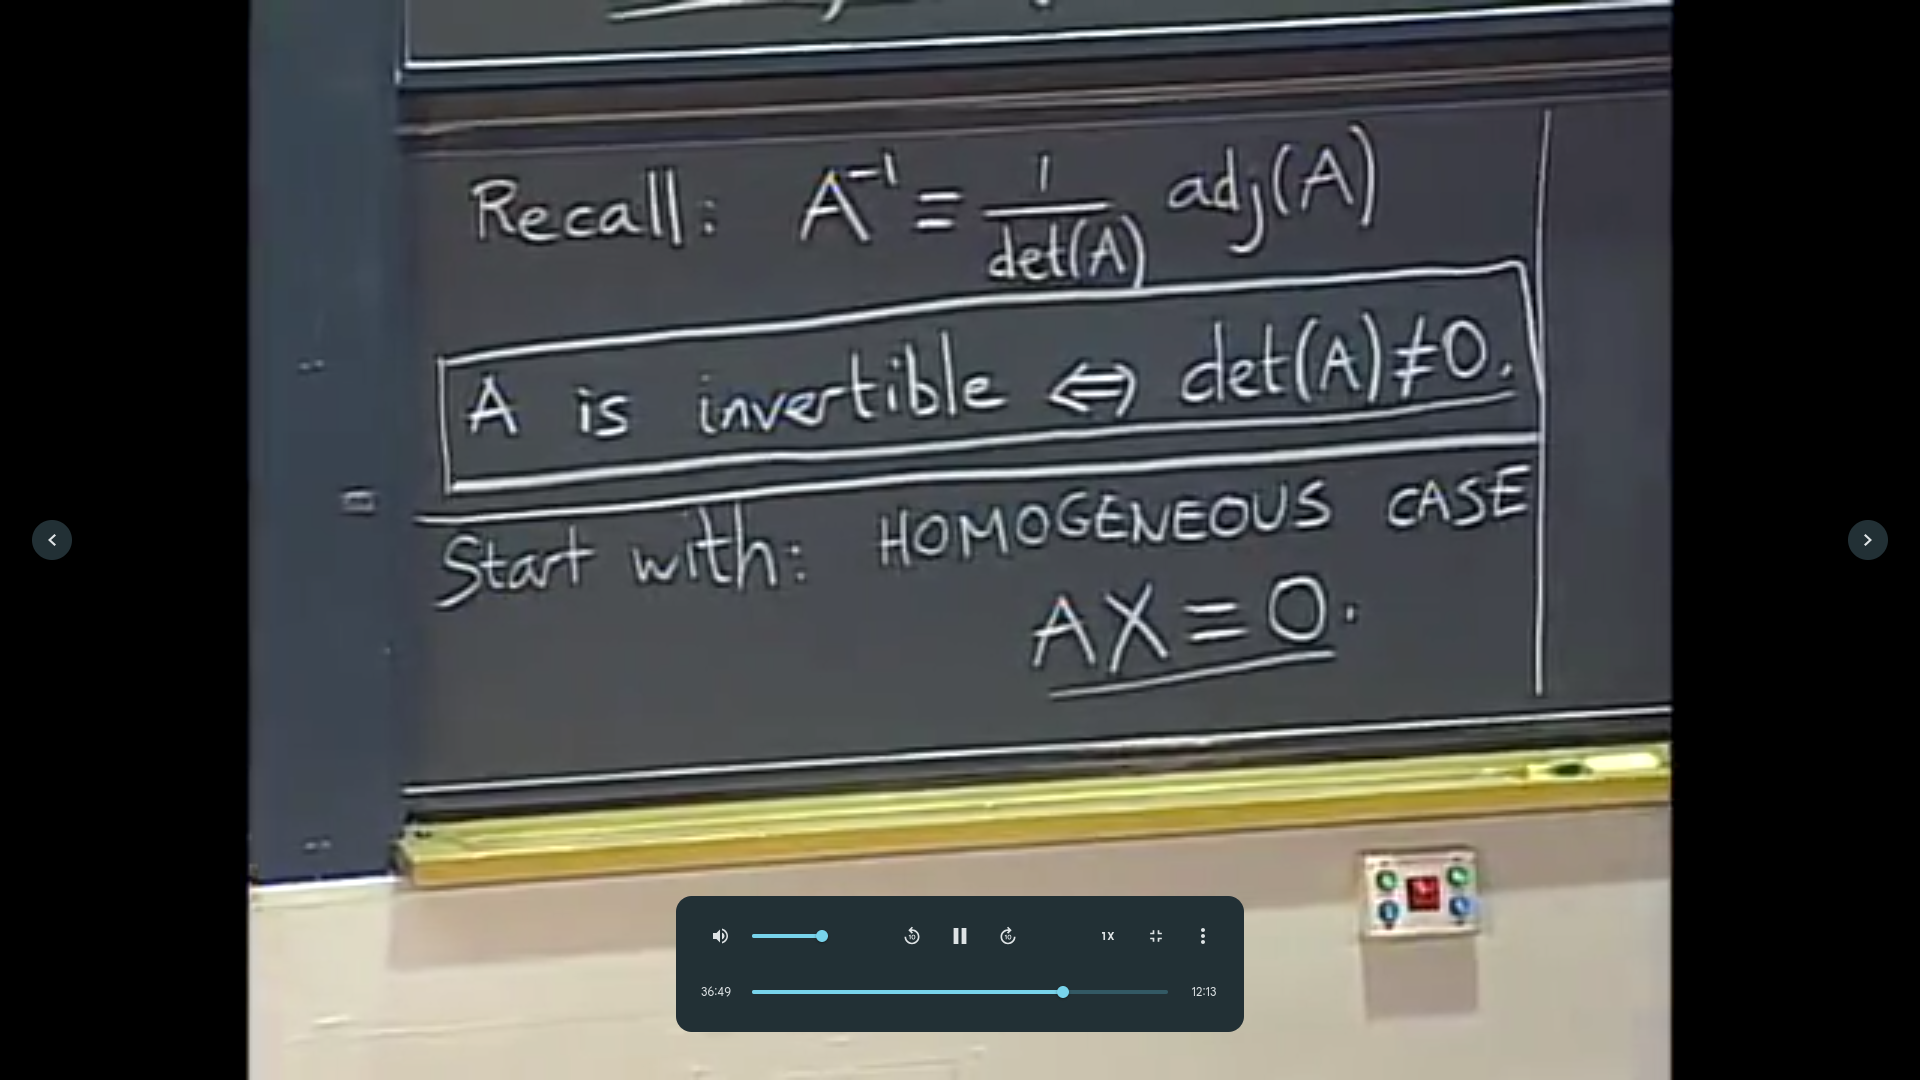 Recall: A⁻¹ = 1/det(A) adj(A)
A is invertible ⇔ det(A)≠0.
Start with: HOMOGENEOUS CASE
AX = 0.
10
10
1X
36:49
12:13